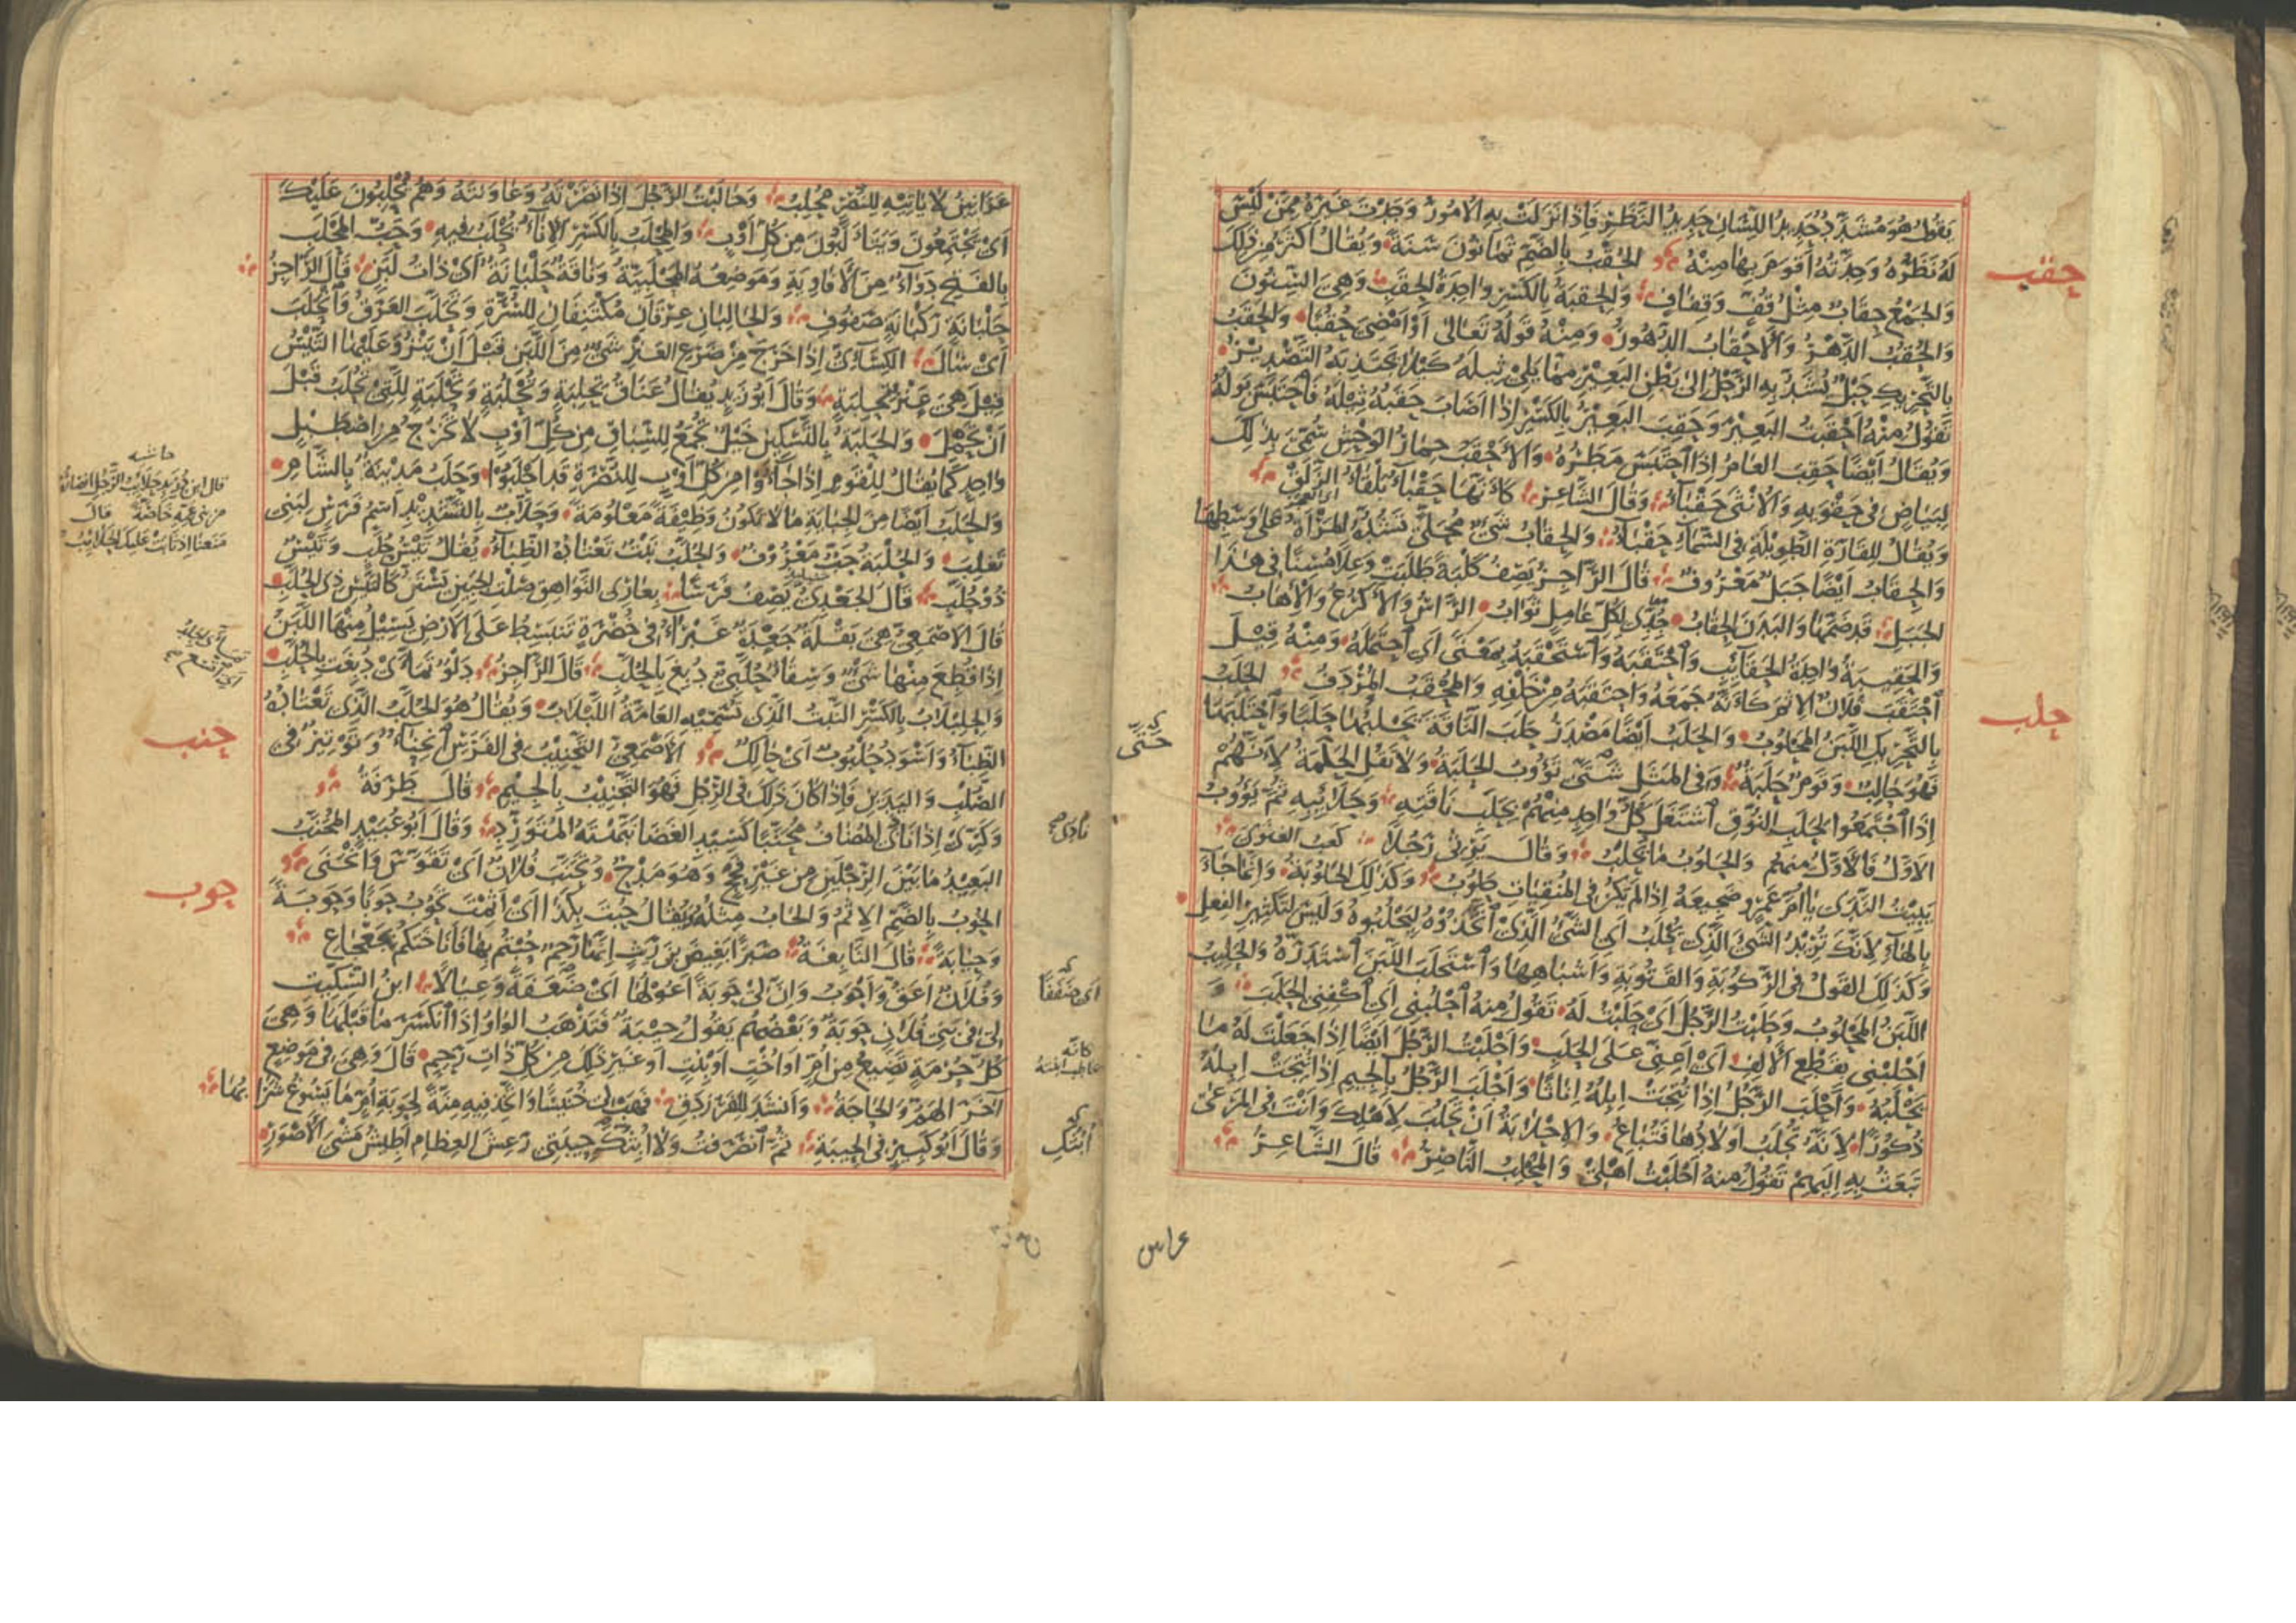 يَقُولُ هُوَ مُسَدَّدٌ حَدِيدُ اللِّسَانِ حَدِيدُ النَّظَرِ فَإِذَا نَزَلَتْ بِهِ الْأُمُورُ وَجَدْتَ غَيْرَهُ مِمَّنْ لَيْسَ
لَهُ نَظَرُهُ وَحِدَّتُهُ أَقْوَمَ بِهَا مِنْهُ الحُقْبُ بِالضَّمِّ ثَمَانُونَ سَنَةً وَيُقَالُ أَكْثَرُ مِنْ ذَلِكَ
حقب
وَالجَمْعُ حِقَابٌ مِثْلُ قُفٍّ وَقِفَافٍ وَالحِقْبَةُ بِالكَسْرِ وَاحِدَةُ الحِقَبِ وَهِيَ السِّنُونَ
وَالحُقُبُ الدَّهْرُ وَالْأَحْقَابُ الدُّهُورُ وَمِنْهُ قَوْلُهُ تَعَالَى أَوْ أَمْضِيَ حُقُبًا وَالحَقَبُ
بِالتَّحْرِيكِ حَبْلٌ يُشَدُّ بِهِ الرَّحْلُ إِلَى بَطْنِ البَعِيرِ مِمَّا يَلِي ثِيلَهُ كَيْلَا يَجْتَذِبَهُ التَّصْدِيرُ
تَقُولُ مِنْهُ أَحْقَبْتُ البَعِيرَ وَحَقِبَ البَعِيرُ بِالكَسْرِ إِذَا أَصَابَ حَقَبُهُ ثِيلَهُ فَاحْتَبَسَ بَوْلُهُ
وَيُقَالُ أَيْضًا حَقِبَ العَامُ إِذَا احْتَبَسَ مَطَرُهُ وَالْأَحْقَبُ حِمَارُ الوَحْشِ سُمِّيَ بِذَلِكَ
لِبَيَاضٍ فِي حَقْوَيْهِ وَالْأُنْثَى حَقْبَاءُ وَقَالَ الشَّاعِرُ كَأَنَّهَا حَقْبَاءُ بَلْقَاءُ الزَّلَقْ
وَيُقَالُ لِلْقَارَةِ الطَّوِيلَةِ فِي السَّمَاءِ حَقْبَاءُ وَالحِقَابُ شَيْءٌ مُحَلًّى تَشُدُّهُ المَرْأَةُ عَلَى وَسَطِهَا
وَالحِقَابُ أَيْضًا جَبَلٌ مَعْرُوفٌ قَالَ الرَّاجِزُ يَصِفُ كَلْبَةً طَلَبَتْ وَعِلًا مُسِنًّا فِي هَذَا
الجَبَلِ قَدْ ضَمَّهَا وَالبَدَنَ الحِقَابُ جِدِّي لِكُلِّ عَامِلٍ ثَوَابُ الرَّأْسُ وَالأَكْرُعُ وَالإِهَابُ
وَالحَقِيبَةُ وَاحِدَةُ الحَقَائِبِ وَاحْتَقَبَهُ وَاسْتَحْقَبَهُ بِمَعْنًى أَيِ احْتَمَلَهُ وَمِنْهُ قِيلَ
احْتَقَبَ فُلَانٌ الإِثْمَ كَأَنَّهُ جَمَعَهُ وَاحْتَقَبَهُ مِنْ خَلْفِهِ وَالمُحْقَبُ المُرْدَفُ الحَلَبُ
حلب
بِالتَّحْرِيكِ اللَّبَنُ المَحْلُوبُ وَالحَلَبُ أَيْضًا مَصْدَرُ حَلَبَ النَّاقَةَ يَحْلُبُهَا حَلَبًا وَاحْتَلَبَهَا
فَهُوَ حَالِبٌ وَقَوْمٌ حَلَبَةٌ وَفِي المَثَلِ شَتَّى تَؤُوبُ الحَلَبَةُ وَلَا تَقُلِ الحَلَمَةُ لِأَنَّهُمْ
حَتَّى
إِذَا اجْتَمَعُوا لِحَلَبِ النُّوقِ اشْتَغَلَ كُلُّ وَاحِدٍ مِنْهُمْ بِحَلَبِ نَاقَتِهِ وَحَلَائِبِهِ ثُمَّ يَؤُوبُ
الأَوَّلُ فَالأَوَّلُ مِنْهُمْ وَالحَلُوبُ مَا يُحْلَبُ وَقَالَ يَرْثِي رَجُلًا كَعْبٌ الغَنَوِيُّ
يَبِيتُ النَّدَى يَا أُمَّ عَمْرٍو ضَجِيعَهُ إِذَا لَمْ يَكُنْ فِي المُنْقِيَاتِ حَلُوبُ وَكَذَلِكَ الحَلُوبَةُ وَإِنَّمَا جَاءَ
بِالهَاءِ لِأَنَّكَ تُرِيدُ الشَّيْءَ الَّذِي يُحْلَبُ أَيِ الشَّيْءُ الَّذِي اتَّخَذُوهُ لِيَحْلُبُوهُ وَلَيْسَ لِتَكْثِيرِ الفِعْلِ
وَكَذَلِكَ القَوْلُ فِي الرَّكُوبَةِ وَالقَتُوبَةِ وَأَشْبَاهِهَا وَاسْتَحْلَبَ اللَّبَنَ اسْتَدَرَّهُ وَالحَلِيبُ
اللَّبَنُ المَحْلُوبُ وَحَلَبْتُ الرَّجُلَ أَيْ حَلَبْتُ لَهُ تَقُولُ مِنْهُ احْلُبْنِي أَيِ اكْفِنِي الحَلَبَ وَ
أَحْلِبْنِي بِقَطْعِ الأَلِفِ أَيْ أَعِنِّي عَلَى الحَلَبِ وَأَحْلَبْتُ الرَّجُلَ أَيْضًا إِذَا جَعَلْتَ لَهُ مَا
يَحْلُبُهُ وَأَحْلَبَ الرَّجُلُ إِذَا نُتِجَتْ إِبِلُهُ إِنَاثًا وَأَجْلَبَ الرَّجُلُ بِالجِيمِ إِذَا نُتِجَتْ إِبِلُهُ
ذُكُورًا لِأَنَّهُ تُجْلَبُ أَوْلَادُهَا فَتُبَاعُ وَالإِحْلَابَةُ أَنْ تَحْلُبَ لِأَهْلِكَ وَأَنْتَ فِي المَرْعَى
تَبْعَثُ بِهِ إِلَيْهِمْ تَقُولُ مِنْهُ أَحْلَبْتُ أَهْلِي وَالمُحْلِبُ النَّاصِرُ قَالَ الشَّاعِرُ
عَرَانِينُ لَا يَأْتِيهِ لِلنَّصْرِ مُحْلِبُ وَحَالَبْتُ الرَّجُلَ إِذَا نَصَرْتَهُ وَعَاوَنْتَهُ وَهُمْ يُحْلِبُونَ عَلَيْكَ
أَيْ يَجْتَمِعُونَ وَيَتَأَلَّبُونَ مِنْ كُلِّ أَوْبٍ وَالمِحْلَبُ بِالكَسْرِ الإِنَاءُ يُحْلَبُ فِيهِ وَحَبُّ المَحْلَبِ
بِالفَتْحِ دَوَاءٌ مِنَ الأَفَاوِيهِ وَمَوْضِعُهُ المَحْلَبِيَّةُ وَنَاقَةٌ حَلْبَانَةٌ أَيْ ذَاتُ لَبَنٍ قَالَ الرَّاجِزُ
حَلْبَانَةٍ رَكْبَانَةٍ صَفُوفِ وَالحَالِبَانِ عِرْقَانِ مُكْتَنِفَانِ لِلسُّرَّةِ وَتَحَلَّبَ العَرَقُ وَانْحَلَبَ
أَيْ سَالَ الكِسَائِيُّ إِذَا خَرَجَ مِنْ ضَرْعِ العَنْزِ شَيْءٌ مِنَ اللَّبَنِ قَبْلَ أَنْ يَنْزُوَ عَلَيْهَا التَّيْسُ
قِيلَ هِيَ عَنْزٌ تُحْلُبَةٌ وَقَالَ أَبُو زَيْدٍ يُقَالُ عَنَاقٌ تِحْلِبَةٌ وَتُحْلُبَةٌ وَتُحْلَبَةٌ لِلَّتِي تُحْلَبُ قَبْلَ
أَنْ تَحْمِلَ وَالحَلْبَةُ بِالتَّسْكِينِ خَيْلٌ تُجْمَعُ لِلسِّبَاقِ مِنْ كُلِّ أَوْبٍ لَا تَخْرُجُ مِنْ إِصْطَبْلٍ
وَاحِدٍ كَمَا يُقَالُ لِلْقَوْمِ إِذَا جَاءُوا مِنْ كُلِّ أَوْبٍ لِلنُّصْرَةِ قَدْ أَحْلَبُوا وَحَلَبُ مَدِينَةٌ بِالشَّامِ
حاشيه
قال ابن دريد حلائب الرجل انصاره
من بني عمه خاصة قال
وَالحَلَبُ أَيْضًا مِنَ الجِبَايَةِ مَا لَا يَكُونُ وَظِيفَةً مَعْلُومَةً وَحَلَّابٌ بِالتَّشْدِيدِ اسْمُ فَرَسٍ لِبَنِي
تَغْلِبَ وَالحُلْبَةُ حَبٌّ مَعْرُوفٌ وَالحُلَّبُ نَبْتٌ تَعْتَادُهُ الظِّبَاءُ يُقَالُ تَيْسُ حُلَّبٍ وَتَيْسٌ
ذُو حُلَّبٍ قَالَ الجَعْدِيُّ يَصِفُ فَرَسًا بِعَارِي النَّوَاهِقِ صَلْتِ الجَبِينِ يَسْتَنُّ كَالتَّيْسِ ذِي الحُلَّبِ
قَالَ الأَصْمَعِيُّ هِيَ بَقْلَةٌ جَعْدَةٌ غَبْرَاءُ فِي خُضْرَةٍ تَنْبَسِطُ عَلَى الأَرْضِ يَسِيلُ مِنْهَا اللَّبَنُ
إِذَا قُطِعَ مِنْهَا شَيْءٌ وَسِقَاءٌ حُلَّبِيٌّ دُبِغَ بِالحُلَّبِ قَالَ الرَّاجِزُ دَلْوٌ تَمَأَّى دُبِغَتْ بِالحُلَّبِ
وَالحِلِبْلَابُ بِالكَسْرِ النَّبْتُ الَّذِي تُسَمِّيهِ العَامَّةُ اللَّبْلَابَ وَيُقَالُ هُوَ الحُلَّبُ الَّذِي تَعْتَادُهُ
الظِّبَاءُ وَأَسْوَدُ حُلْبُوبٌ أَيْ حَالِكٌ الأَصْمَعِيُّ التَّحْنِيبُ فِي الفَرَسِ انْحِنَاءٌ وَتَوْتِيرٌ فِي
حنب
الصُّلْبِ وَاليَدَيْنِ فَإِذَا كَانَ ذَلِكَ فِي الرِّجْلِ فَهُوَ التَّجْنِيبُ بِالجِيمِ قَالَ طَرَفَةُ
وَكَرِّي إِذَا نَادَى المُضَافُ مُحَنَّبًا كَسِيدِ الغَضَا نَبَّهْتَهُ المُتَوَرِّدِ وَقَالَ أَبُو عُبَيْدٍ المُحَنَّبُ
البَعِيدُ مَا بَيْنَ الرِّجْلَيْنِ مِنْ غَيْرِ فَحَجٍ وَهُوَ مَدْحٌ وَتَحَنَّبَ فُلَانٌ أَيْ تَقَوَّسَ وَانْحَنَى
الحُوبُ بِالضَّمِّ الإِثْمُ وَالحَابُ مِثْلُهُ وَيُقَالُ حُبْتَ بِكَذَا أَيْ أَثِمْتَ تَحُوبُ حَوْبًا وَحَوْبَةً
حوب
وَحِيَابَةً قَالَ النَّابِغَةُ صَبْرًا بَغِيضَ بْنَ رَيْثٍ إِنَّهَا رَحِمٌ حُبْتُمْ بِهَا فَأَنَاخَتْكُمْ بِجَعْجَاعِ
وَفُلَانٌ أَعَقُّ وَأَحْوَبُ وَإِنَّ لِي حَوْبَةً أَعُولُهَا أَيْ ضَعَفَةً وَعِيَالًا ابْنُ السِّكِّيتِ
لِي فِي بَنِي فُلَانٍ حَوْبَةٌ وَبَعْضُهُمْ يَقُولُ حِيبَةٌ فَتَذْهَبُ الوَاوُ إِذَا انْكَسَرَ مَا قَبْلَهَا وَهِيَ
كُلُّ حُرْمَةٍ تَضِيعُ مِنْ أُمٍّ أَوْ أُخْتٍ أَوْ بِنْتٍ أَوْ غَيْرِ ذَلِكَ مِنْ كُلِّ ذَاتِ رَحِمٍ قَالَ وَهِيَ فِي مَوْضِعٍ
آخَرَ الهَمُّ وَالحَاجَةُ وَأَنْشَدَ لِلْفَرَزْدَقِ فَهَبْ لِي خُنَيْسًا وَاتَّخِذْ فِيهِ مِنَّةً لِحَوْبَةِ أُمٍّ مَا يَسُوغُ شَرَابُهَا
وَقَالَ أَبُو كَبِيرٍ فِي الحِيبَةِ ثُمَّ انْصَرَفْتُ وَلَا أَبُثُّكَ حِيبَتِي رَعِشَ العِظَامِ أَطِيشُ مَشْيَ الأَصْوَرِ
عرانين